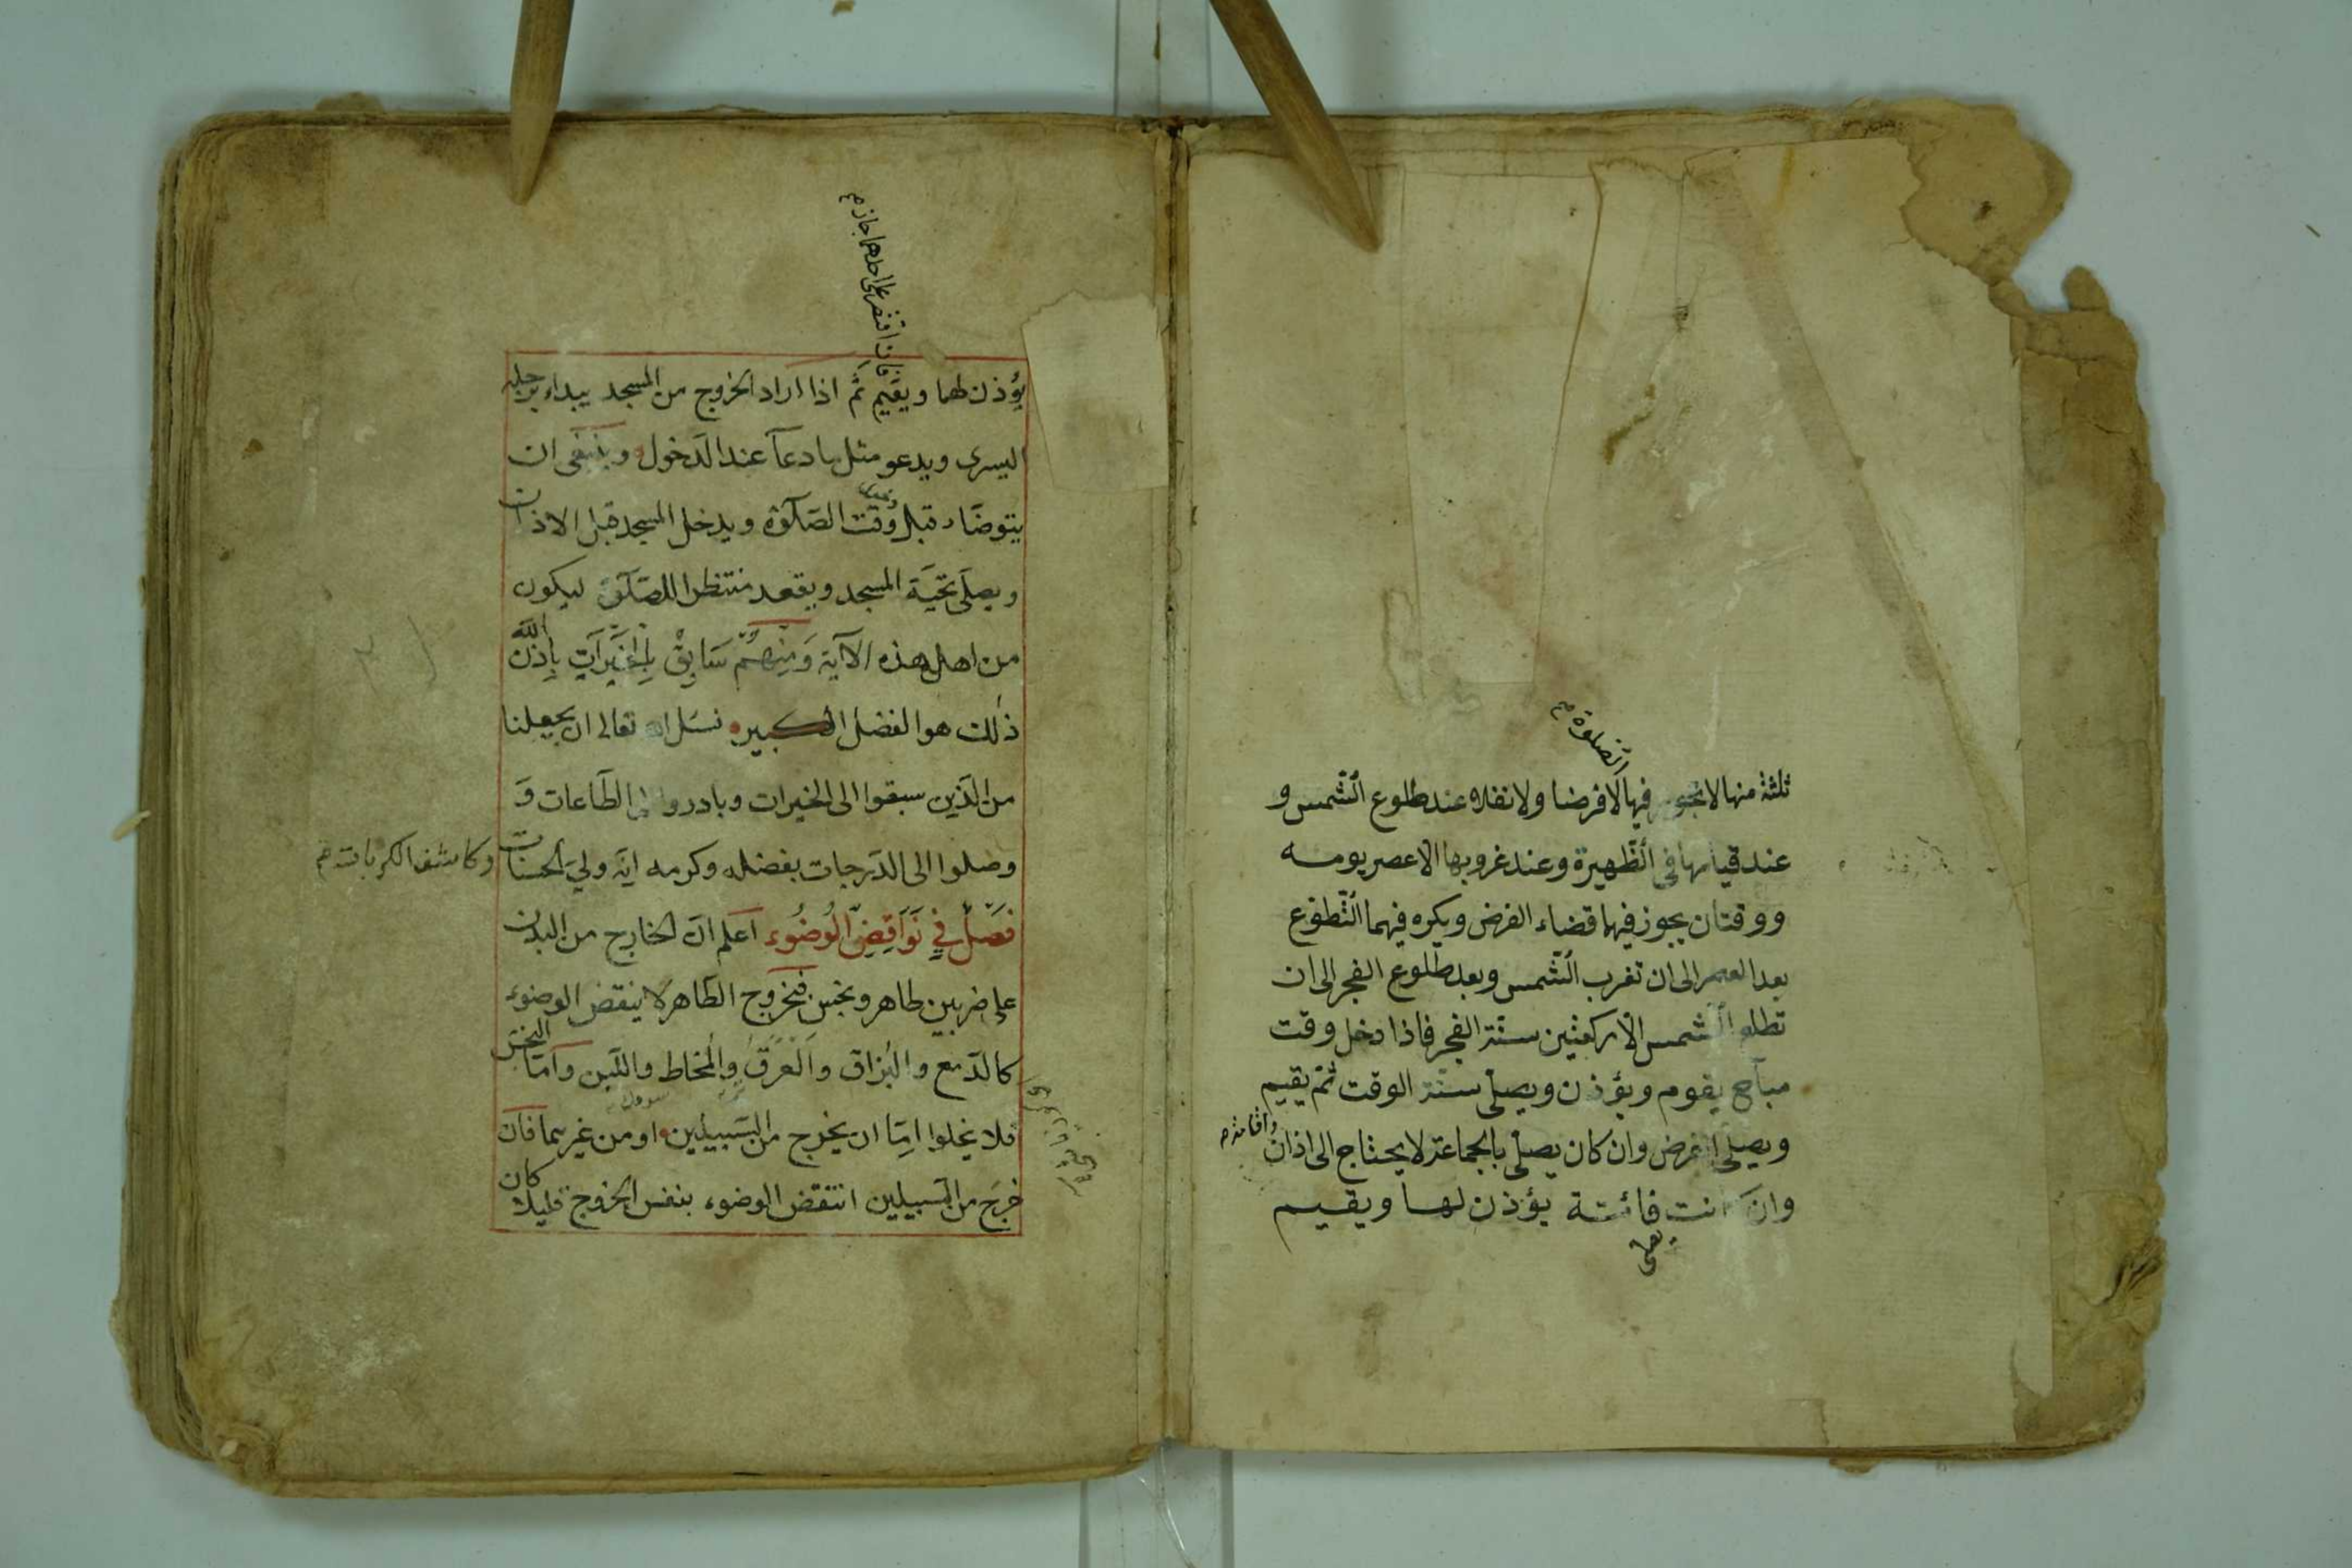 الصلوة م
ثلثة منها لا يجوز فيها لا فرضا ولا نفلا عند طلوع الشمس و
عند قيامها فى الظهيرة وعند غروبها الا عصر يومه
ووقتان يجوز فيهما قضاء الفرض ويكره فيهما التطوع
بعد العصر الى ان تغرب الشمس وبعد طلوع الفجر الى ان
تطلع الشمس الا ركعتين سنة الفجر فاذا دخل وقت
مباح يقوم ويؤذن ويصلى سنة الوقت ثم يقيم
ويصلى الفرض وان كان يصلى بالجماعة لا يحتاج الى اذان
واقامة م
وان كانت فائتة يؤذن لها ويقيم
فان اقتصر على احدهما جاز م
يؤذن لها ويقيم ثم اذا اراد الخروج من المسجد يبداء برجله
اليسرى ويدعو مثل ما دعا عند الدخول وينبغى ان
يتوضاء قبل وقت الصلوة ويدخل المسجد قبل الاذان
ويصلى تحية المسجد ويقعد منتظرا للصلوة ليكون
من اهل هذه الآية وَمِنْهُمْ سَابِقٌ بِالْخَيْرَاتِ بِاِذْنِ الله
ذلك هو الفضل الكبير نسئل الله تعالى ان يجعلنا
من الذين سبقوا الى الخيرات وبادروا الى الطاعات وَ
وصلوا الى الدرجات بفضله وكرمه انه ولي الحسنات
وكاشف الكربات م
فَصْلٌ فِي نَوَاقِضِ الْوُضُوءِ اعلم ان الخارج من البدن
على ضربين طاهر ونجس فخروج الطاهر لا ينقض الوضوء
كالدمع والبزاق والعرق والمخاط واللبن واما النجس
فلا يخلوا اما ان يخرج من السبيلين او من غيرهما فان
خرج من السبيلين انتقض الوضوء بنفس الخروج قليلا كان